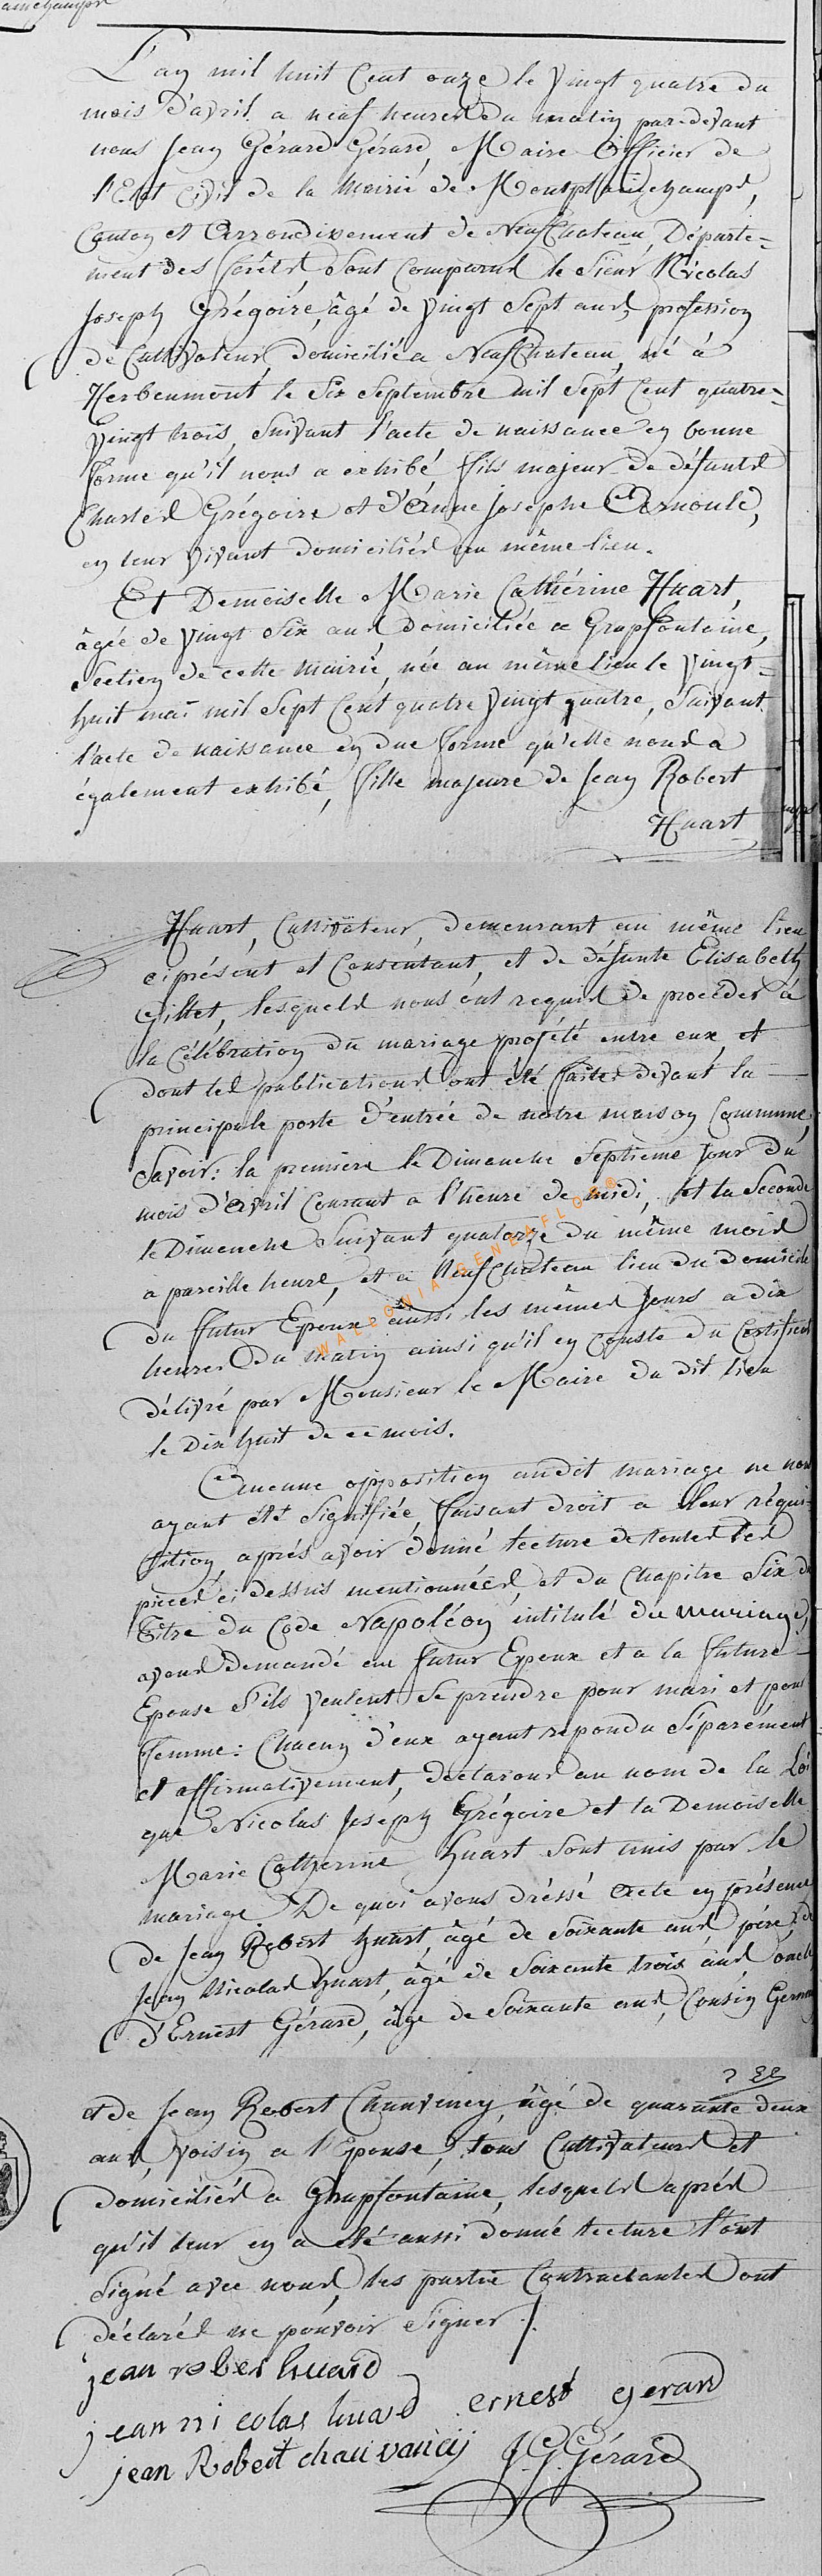 L'an mil huit Cent onze le Vingt quatre du
mois d'avril a neuf heures du matin par-devant
nous Jean Gérard Gérard, Maire Officier de
l'Etat Civil de la Mairie de Montplainchamps,
Canton et Arrondissement de Neufchateau, Departe=
ment des forêts, sont Comparus le Sieur Nicolas
Joseph Grégoire, âgé de Vingt Sept ans, profession
de Cultivateur, domicilié a Neufchateau, né à
Herbeumont le Six Septembre mil Sept Cent quatre=
Vingt trois, Suivant l'acte de naissance en bonne
forme qu'il nous a exhibé, fils majeur de défunts
Charles Grégoire et d'Anne Josephe Arnould,
en leur Vivant domiciliés au même lieu.
Et Demoiselle Marie Cathérine Huart,
âgée de Vingt Six ans, domiciliée a Grapfontaine,
Section de cette mairie, née au même lieu le Vingt=
huit mai mil Sept Cent quatre Vingt quatre, Suivant
l'acte de naissance en due forme qu'elle nous a
également exhibé, fille majeure de Jean Robert
Huart
Huart, Cultivateur, demeurant au même lieu
ci présent et Consentant, et de défunte Elisabeth
Gillet, lesquels nous ont requis de procéder à
la Célébration du mariage projété entre eux, et
dont les publications ont été faites devant la
principale porte d'entrée de notre maison Commune,
Savoir: la premiere le Dimanche Septieme jour du
mois d'Avril Courant a l'heure de midi, et la Seconde
le Dimanche Suivant quatorze du même mois
a pareille heure, et a Neufchateau lieu du domicile
du futur Epoux aussi les mêmes jours a dix
heures du matin ainsi qu'il en Conste du Certificat
délivré par Monsieur le Maire du dit lieu
le Dix huit de ce mois.
Aucune opposition audit mariage ne nous
ayant été Signifiée, faisant droit a leur réqui-
sition aprés avoir donné lecture de toutes les
pieces ci dessus mentionnées, et du Chapitre Six du
Titre du Code Napoléon intitulé du mariage,
avons Demandé au futur Epoux et a la future
Epouse S'ils Veulent Se prendre pour mari et pour
Femme: Chacun d'eux ayant repondu Séparément
et affirmativement, déclarons au nom de la Loi
que Nicolas Joseph Grégoire et la Demoiselle
Marie Catherine huart Sont unis par le
mariage. De quoi avons dréssé acte en présence
de Jean Robert huart, âgé de Soixante ans, pére, de
Jean Nicolas huart, âgé de Soixante trois ans, oncle
d'Ernest Gérard, âge de Soixante ans, Cousin Germain
et de Jean Robert Chauvency, âgé de quarante deux
ans, Voisin a l'Epouse, tous Cultivateurs et
domiciliés a Grapfontaine, lesquels aprés
qu'il leur en a été aussi donné lecture l'ont
Signé avec nous, les partie Contractantes ont
déclarés ne pouvoir Signer ./.
jean rober huard
jean nicolas huard ernest gerard
jean Robert chauvancij J G Gérard
WALLONIA-GENEAFLOR®